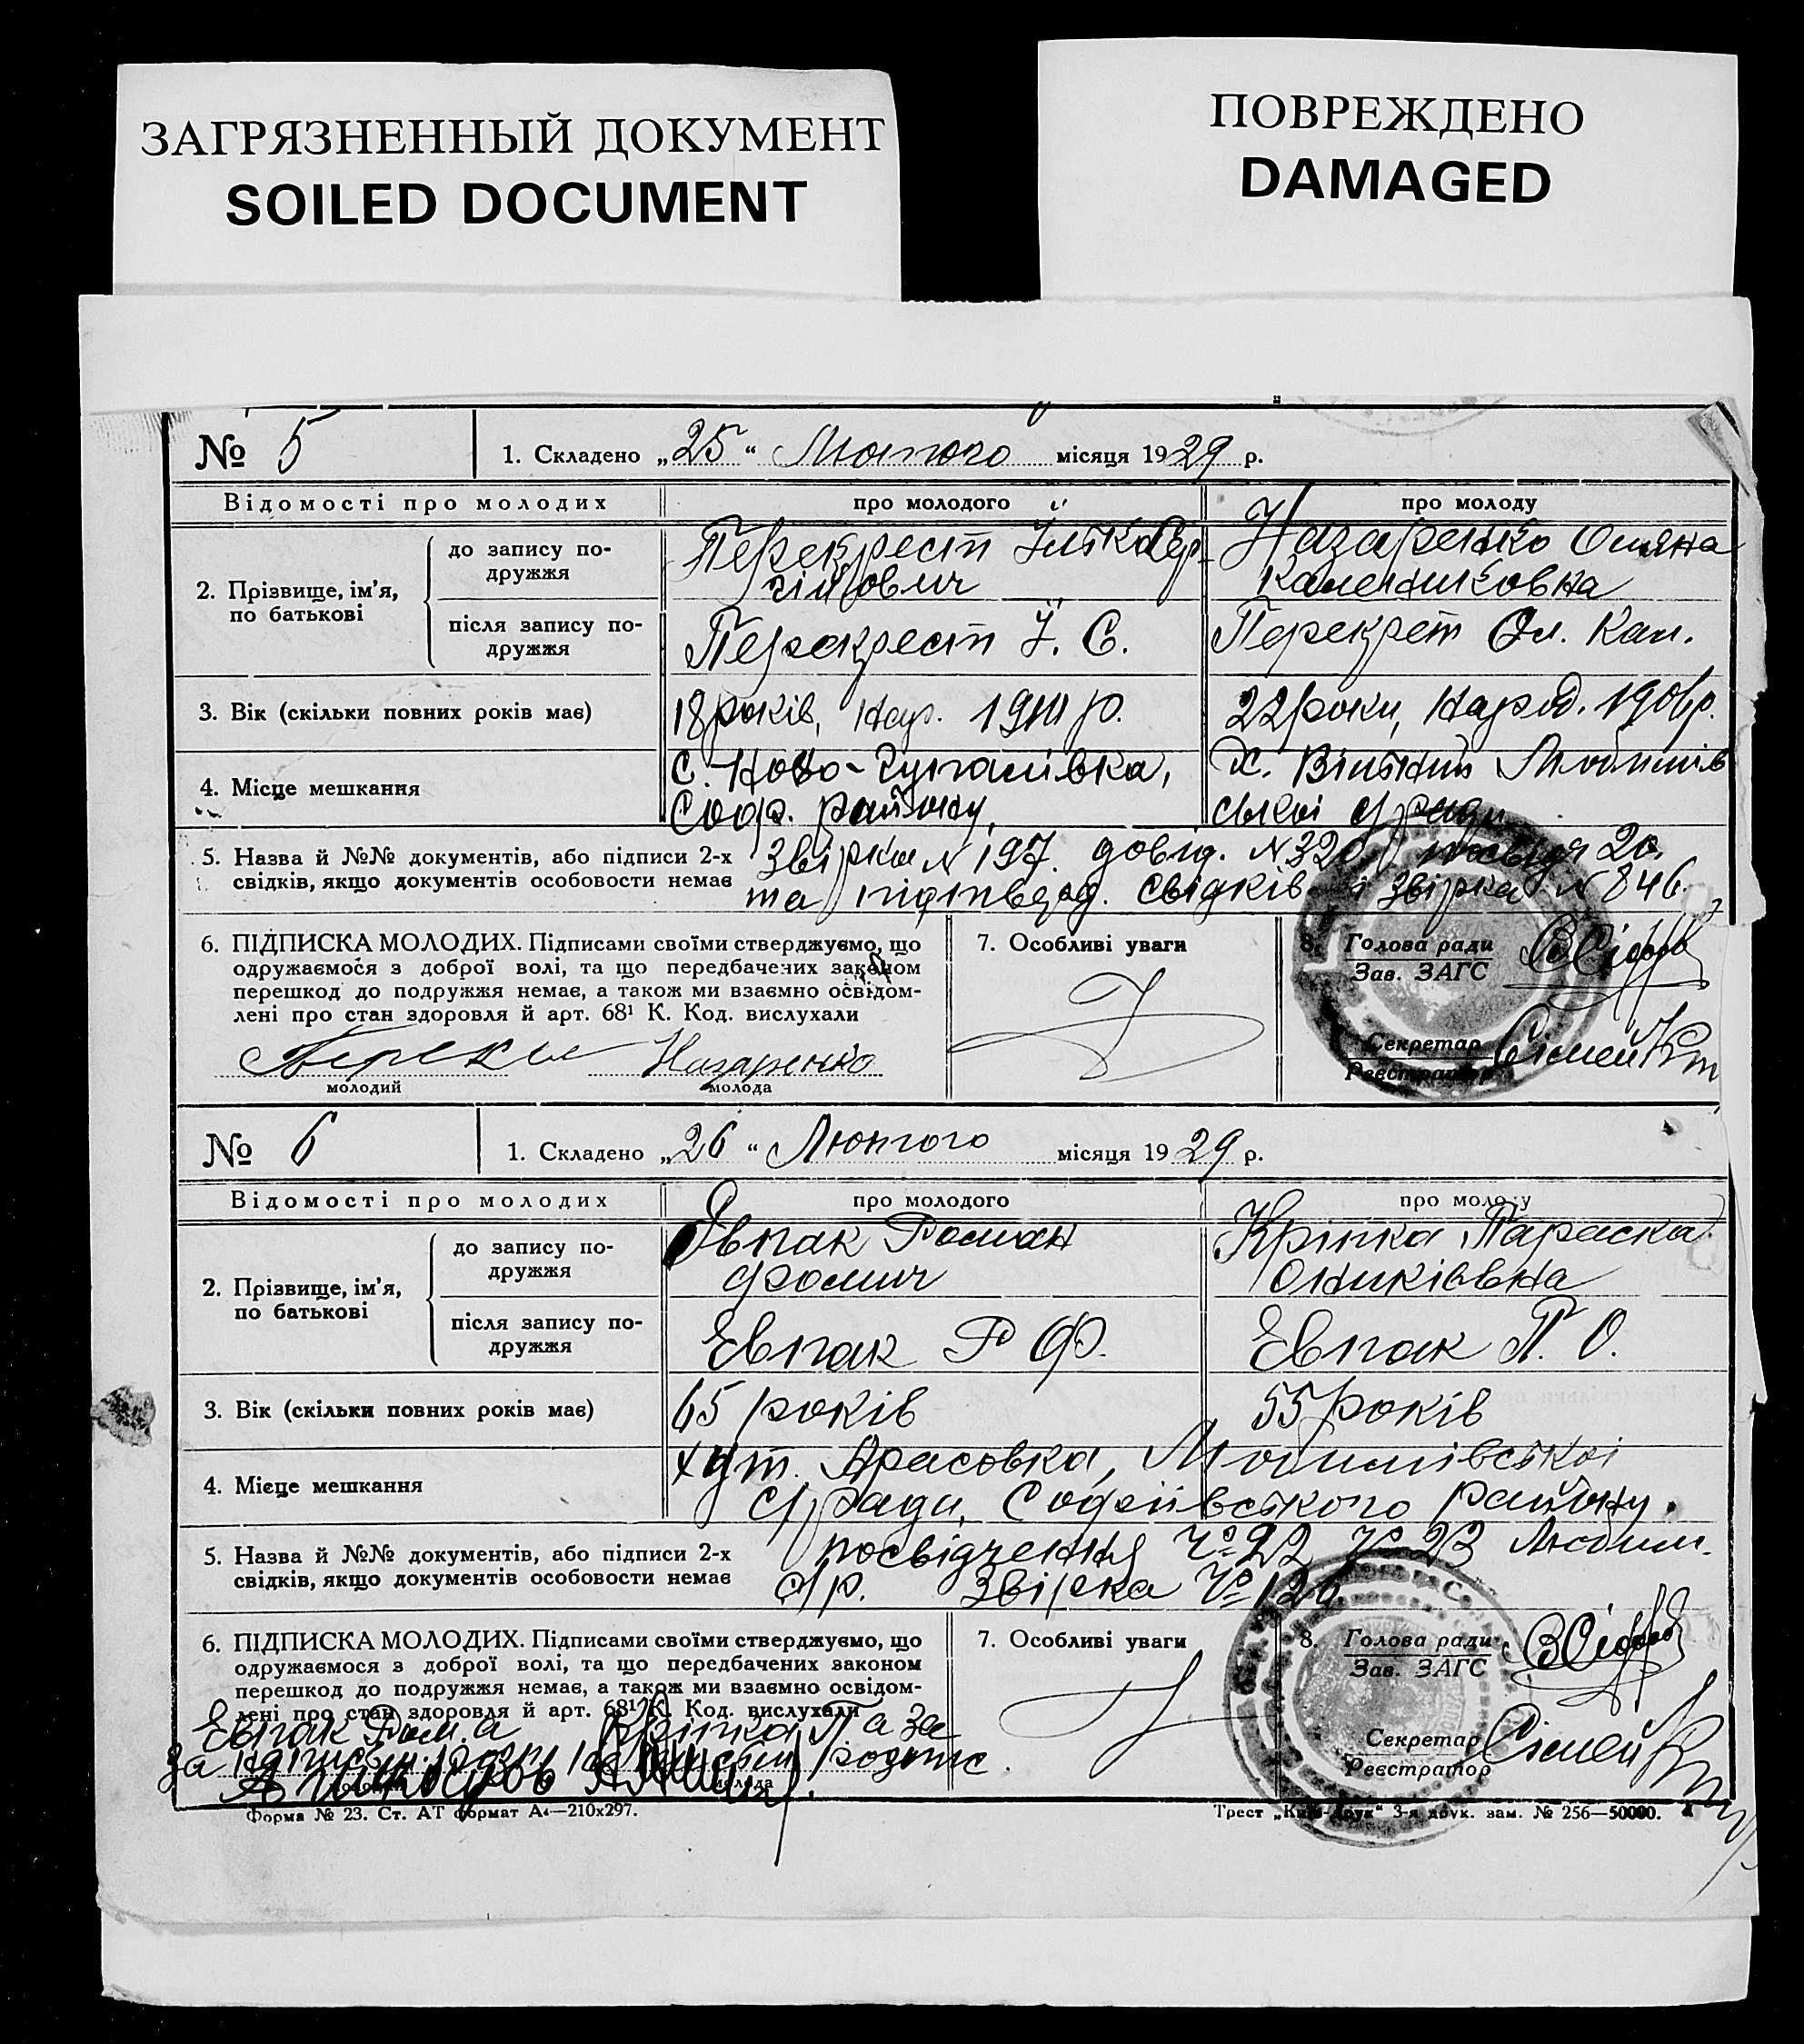 ЗАГРЯЗНЕННЫЙ ДОКУМЕНТ
SOILED DOCUMENT
ПОВРЕЖДЕНО
DAMAGED
№ 5 1. Складено „25“ Лютого місяця 1929 р.
Відомості про молодих про молодого про молоду
2. Прізвище, ім’я, по батькові
до запису подружжя
Перекрест Ілько Сер-
гійович
Назаренко Оляна
Калениковна
після запису подружжя
Перекрест І. С.
Перекрет Ол. Кал.
3. Вік (скільки повних років має) 18 років, нар. 1911 р. 22 роки, народ. 1906 р.
4. Місце мешкання
с. Ново-
Соф. району,
х. Вільний Любимів
ської с/ради
5. Назва й №№ документів, або підписи 2-х
свідків, якщо документів особовости немає
Звірка N 197. довід. N 320
та підтверд. свідків і звірка N 846.
6. ПІДПИСКА МОЛОДИХ. Підписами своїми стверджуємо, що
одружаємося з доброї волі, та що передбачених законом
перешкод до подружжя немає, а також ми взаємно освідом-
лені про стан здоровля й арт. 68¹ К. Код. вислухали
Назаренко
молодий молода
7. Особливі уваги
8. Голова ради
Зав. ЗАГС
Секретар
Реєстратор
№ 6 1. Складено „26“ Лютого місяця 1929 р.
Відомості про молодих про молодого про молоду
2. Прізвище, ім’я, по батькові
до запису подружжя
Євпак Роман
Фомич
Кріпка Параска
Оникіївна
після запису подружжя
Евпак Р Ф.
Евпак П. О.
3. Вік (скільки повних років має) 65 років 55 років
4. Місце мешкання
хут. Любимівської
с/ради, Софіївського району.
5. Назва й №№ документів, або підписи 2-х
свідків, якщо документів особовости немає
посвідчення № 22 № 23 Любим.
с/р. Звірка № 126.
6. ПІДПИСКА МОЛОДИХ. Підписами своїми стверджуємо, що
одружаємося з доброї волі, та що передбачених законом
перешкод до подружжя немає, а також ми взаємно освідом-
лені про стан здоровля й арт. 68¹ К. Код. вислухали
Евпак Ром. а Кріпка П а за
молода
7. Особливі уваги
8. Голова ради
Зав. ЗАГС
Секретар
Реєстратор
Форма № 23. Ст. АТ формат А4—210x297.
Трест „Київ-Друк“ 3-я друк. зам. № 256—50000.